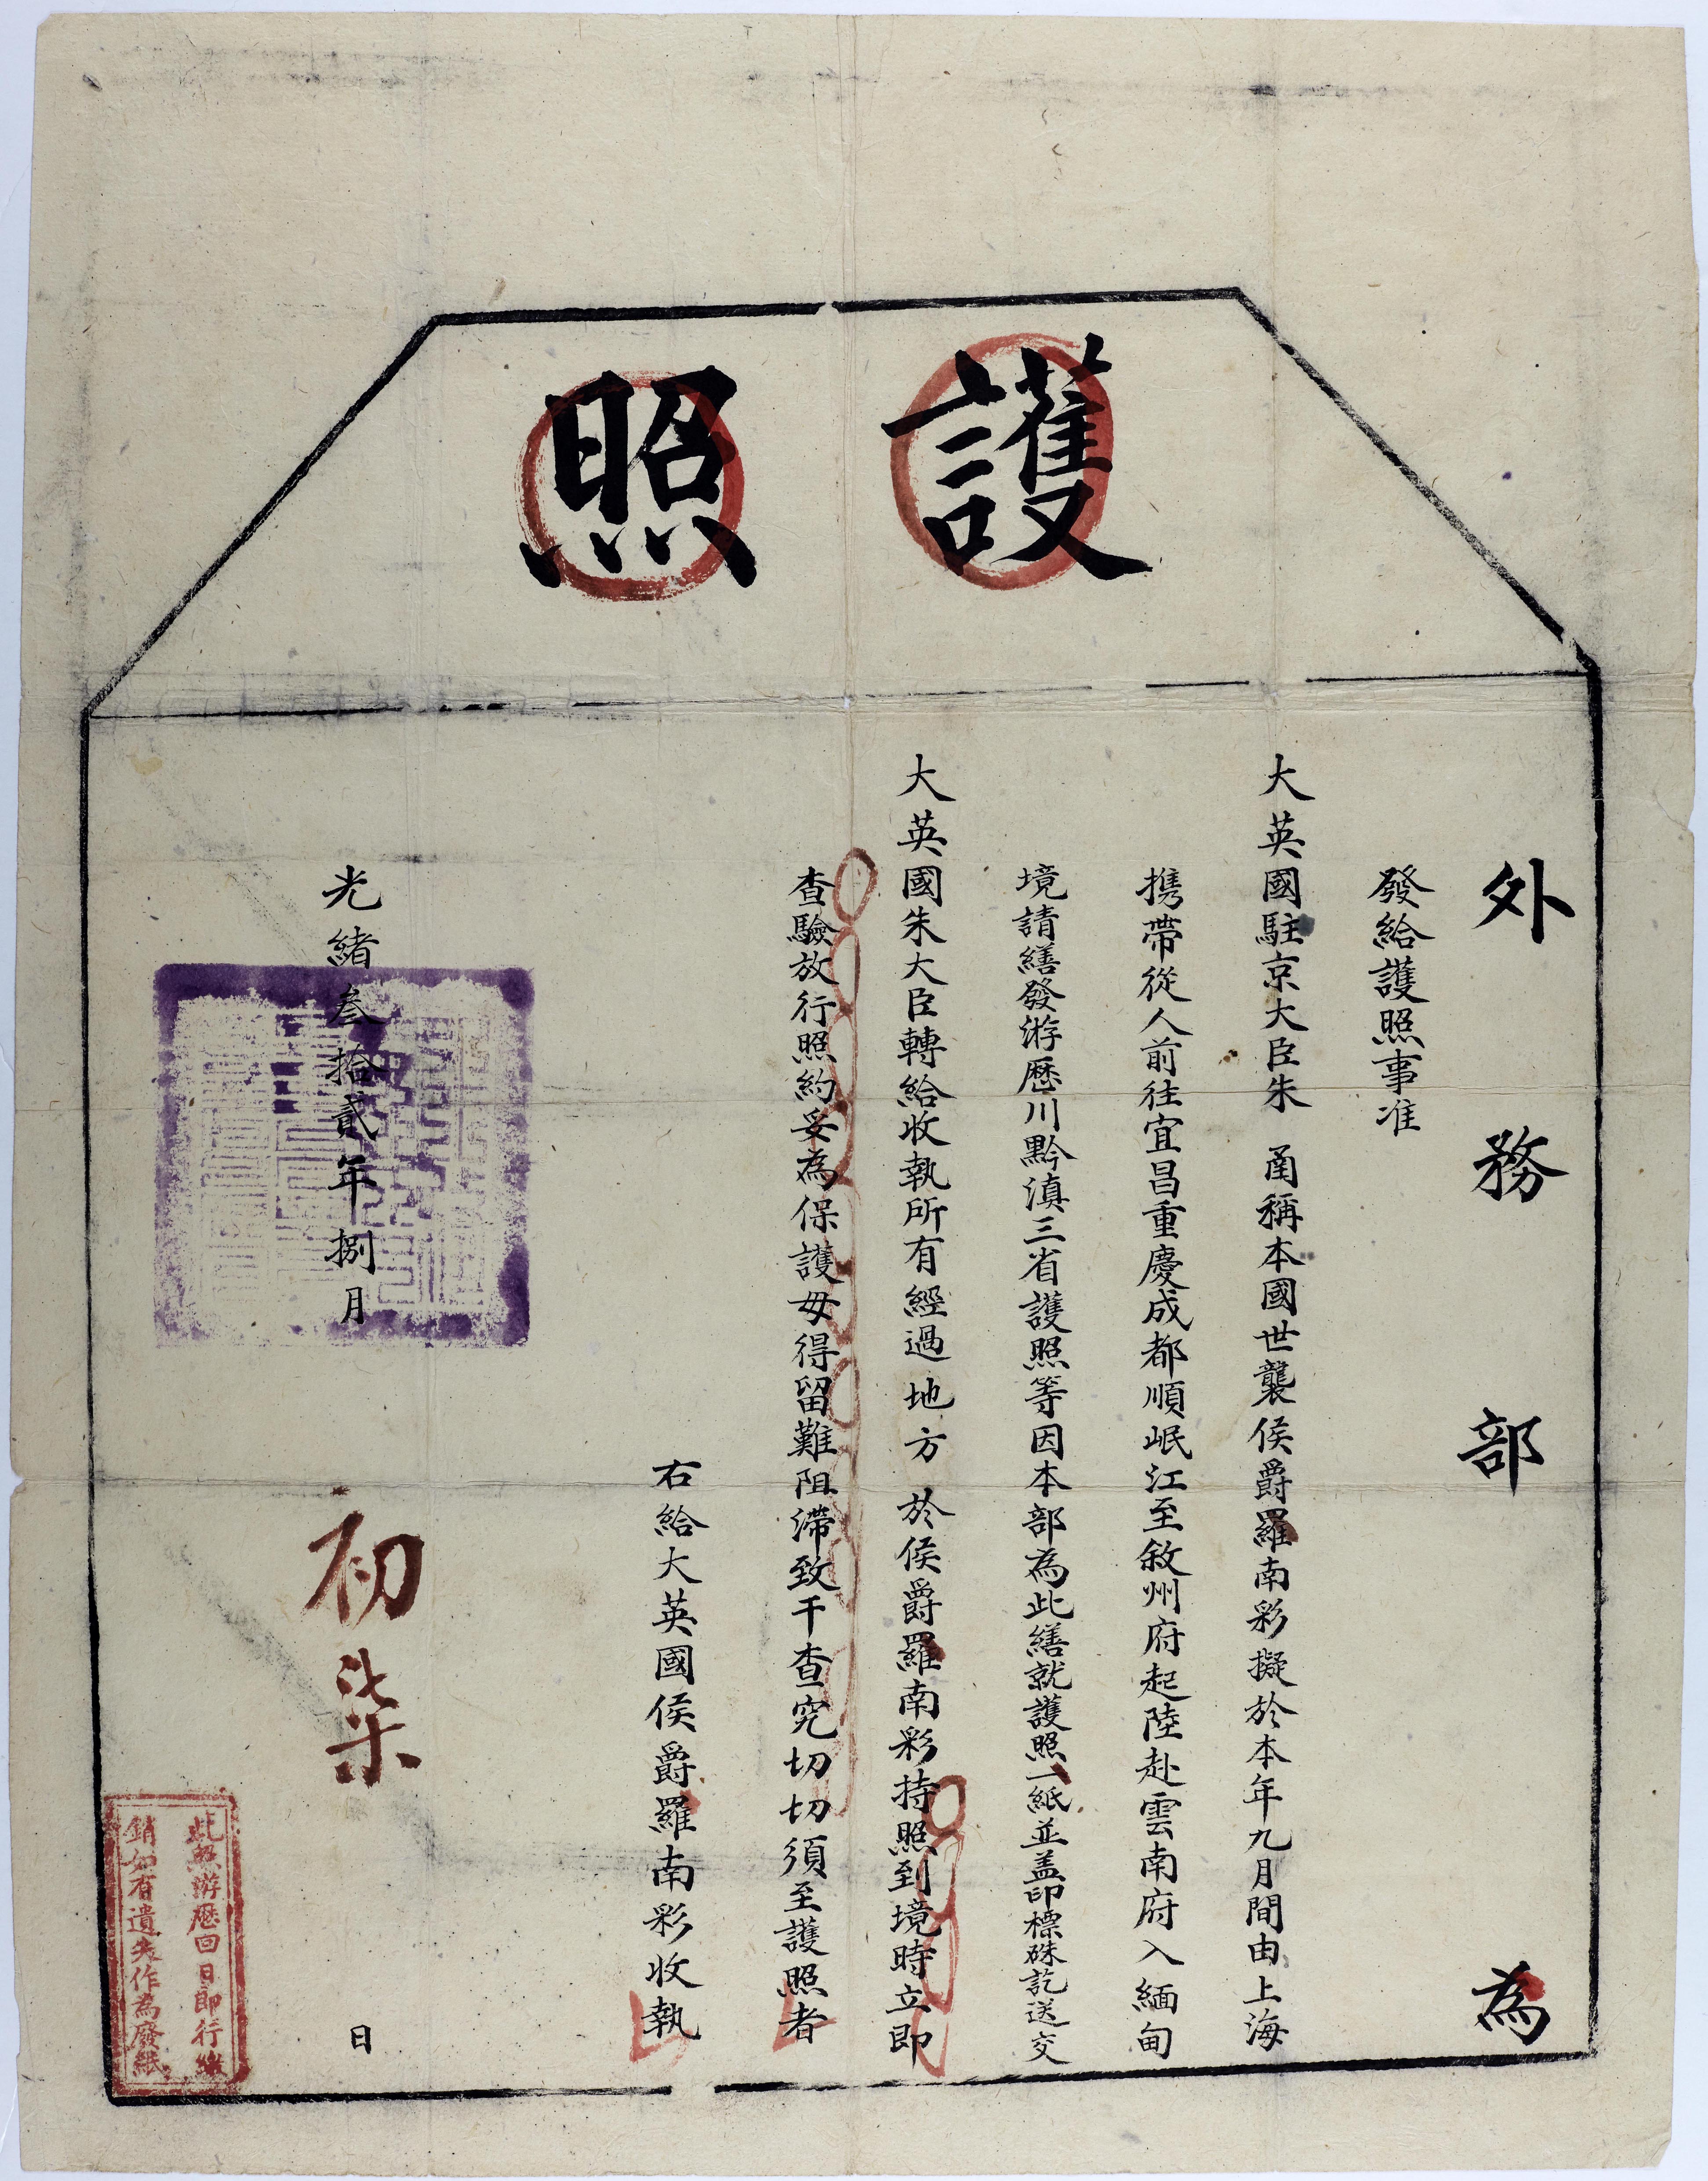 護照
外務部為
發給護照事准
大英國駐京大臣朱 函稱本國世襲侯爵羅南彩擬於本年九月間由上海
携帶從人前往宜昌重慶成都順岷江至敘州府起陸赴雲南府入緬甸
境請繕發游歷川黔滇三省護照等因本部為此繕就護照一紙並盖印標硃訖送交
大英國朱大臣轉給收執所有經過地方於侯爵羅南彩持照到境時立即
查驗放行照約妥為保護毋得留難阻滯致干查究切切須至護照者
右給大英國侯爵羅南彩收執
光緒叁拾貳年捌月初柒日
此照游歷回日即行繳
銷如有遺失作為廢紙